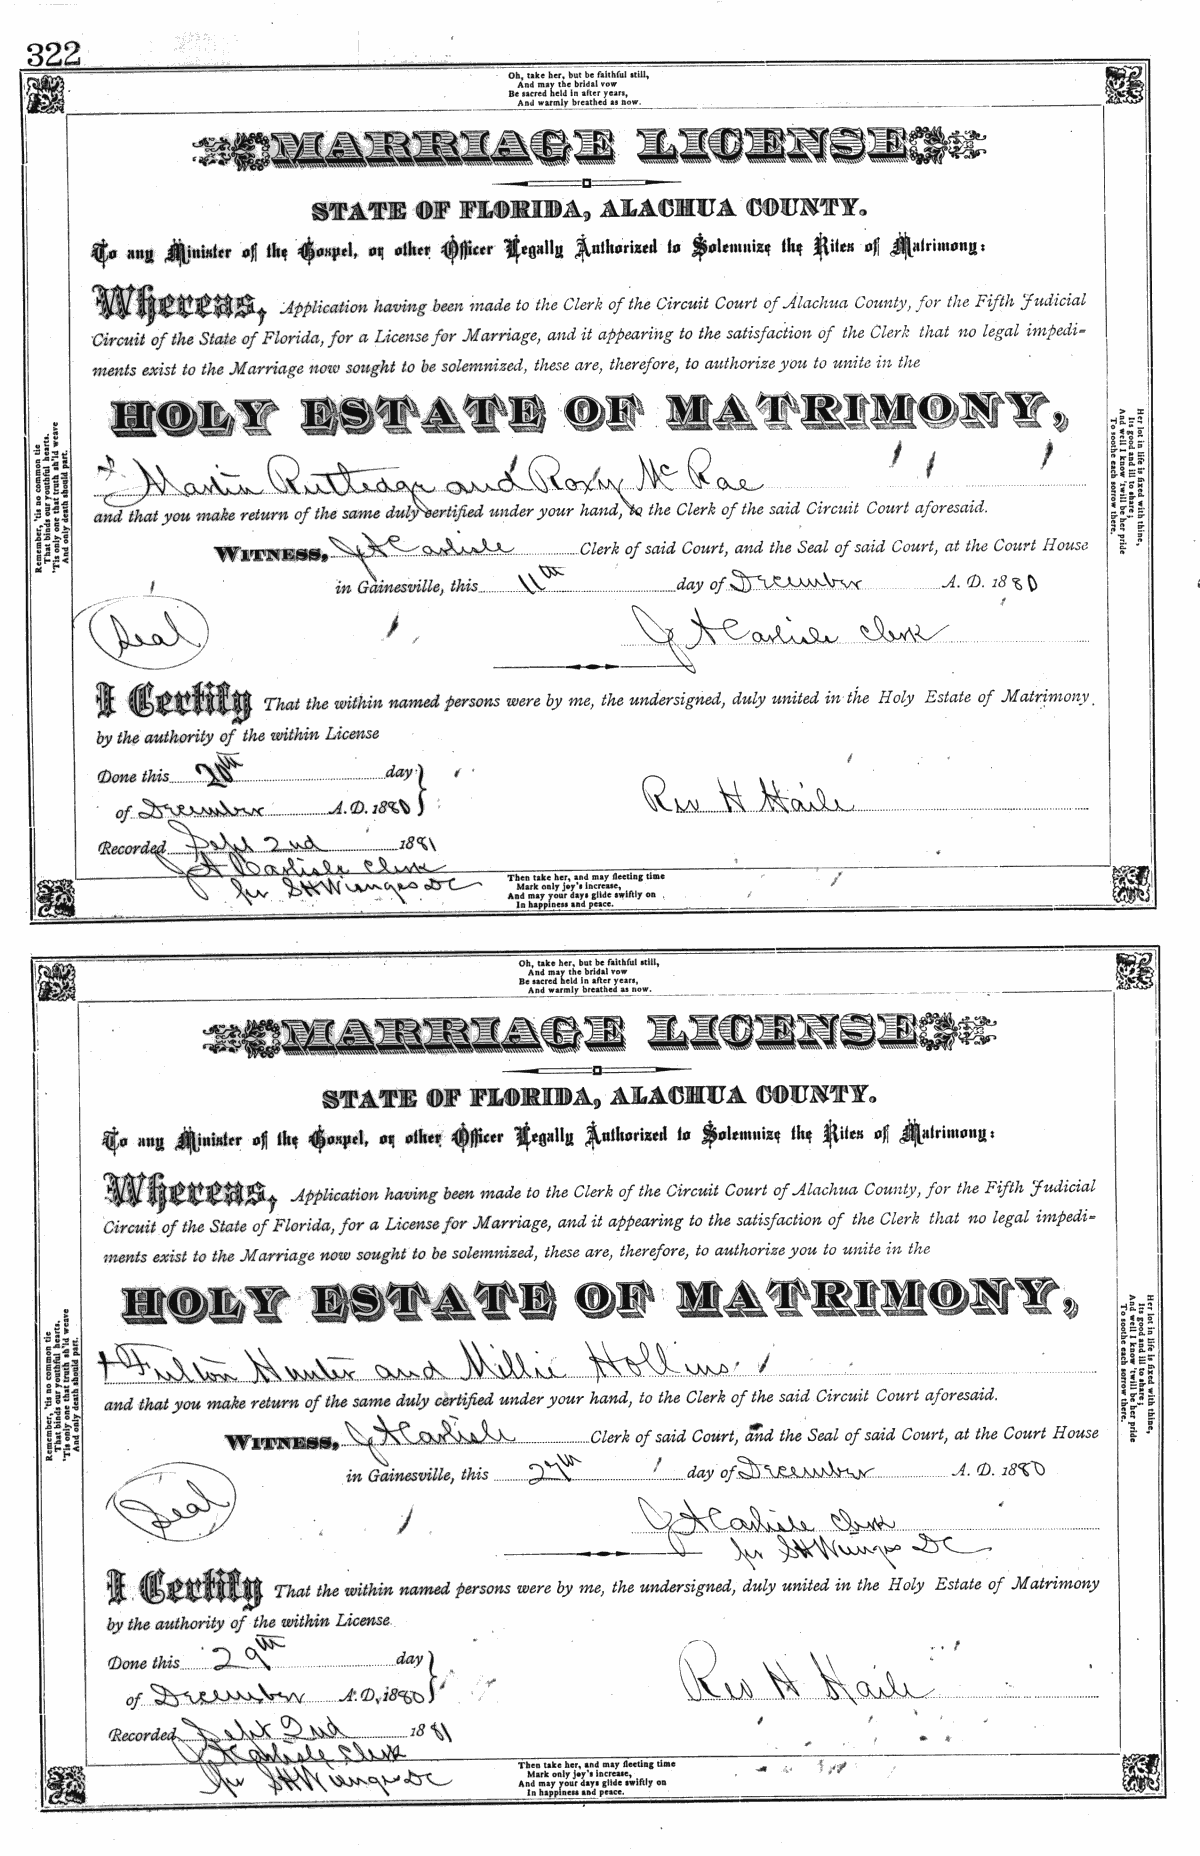 322
Oh, take her, but be faithful still,
And may the bridal vow
Be sacred held in after years,
And warmly breathed as now.
MARRIAGE LICENSE
STATE OF FLORIDA, ALACHUA COUNTY.
To any Minister of the Gospel, or other Officer Legally Authorized to Solemnize the Rites of Matrimony:
Whereas, Application having been made to the Clerk of the Circuit Court of Alachua County, for the Fifth Judicial
Circuit of the State of Florida, for a License for Marriage, and it appearing to the satisfaction of the Clerk that no legal impedi-
ments exist to the Marriage now sought to be solemnized, these are, therefore, to authorize you to unite in the
HOLY ESTATE OF MATRIMONY,
Martin Rutledge and Roxy McRae
and that you make return of the same duly certified under your hand, to the Clerk of the said Circuit Court aforesaid.
WITNESS, J A Carlisle Clerk of said Court, and the Seal of said Court, at the Court House
in Gainesville, this 11th day of December A. D. 1880
Seal
J A Carlisle Clerk
I Certify That the within named persons were by me, the undersigned, duly united in the Holy Estate of Matrimony
by the authority of the within License
Done this 20th day
of December A. D. 1880
Rev H Haile
Recorded Sept 2nd 1881
J A Carlisle Clerk
per S H Wienges DC
Remember, 'tis no common tie
That binds our youthful hearts,
'Tis only one that truth sh'ld weave
And only death should part.
Her lot in life is fixed with thine,
Its good and ill to share;
And well I know 'twill be her pride
To soothe each sorrow there.
Then take her, and may fleeting time
Mark only joy's increase,
And may your days glide swiftly on
In happiness and peace.
Oh, take her, but be faithful still,
And may the bridal vow
Be sacred held in after years,
And warmly breathed as now.
MARRIAGE LICENSE
STATE OF FLORIDA, ALACHUA COUNTY.
To any Minister of the Gospel, or other Officer Legally Authorized to Solemnize the Rites of Matrimony:
Whereas, Application having been made to the Clerk of the Circuit Court of Alachua County, for the Fifth Judicial
Circuit of the State of Florida, for a License for Marriage, and it appearing to the satisfaction of the Clerk that no legal impedi-
ments exist to the Marriage now sought to be solemnized, these are, therefore, to authorize you to unite in the
HOLY ESTATE OF MATRIMONY,
Fulton Hunter and Millie Hollins
and that you make return of the same duly certified under your hand, to the Clerk of the said Circuit Court aforesaid.
WITNESS, J A Carlisle Clerk of said Court, and the Seal of said Court, at the Court House
in Gainesville, this 27th day of December A. D. 1880
Seal
J A Carlisle Clerk
per S H Wienges DC
I Certify That the within named persons were by me, the undersigned, duly united in the Holy Estate of Matrimony
by the authority of the within License
Done this 29th day
of December A. D. 1880
Rev H Haile
Recorded Sept 2nd 1881
J A Carlisle Clerk
per S H Wienges DC
Remember, 'tis no common tie
That binds our youthful hearts,
'Tis only one that truth sh'ld weave
And only death should part.
Her lot in life is fixed with thine,
Its good and ill to share;
And well I know 'twill be her pride
To soothe each sorrow there.
Then take her, and may fleeting time
Mark only joy's increase,
And may your days glide swiftly on
In happiness and peace.